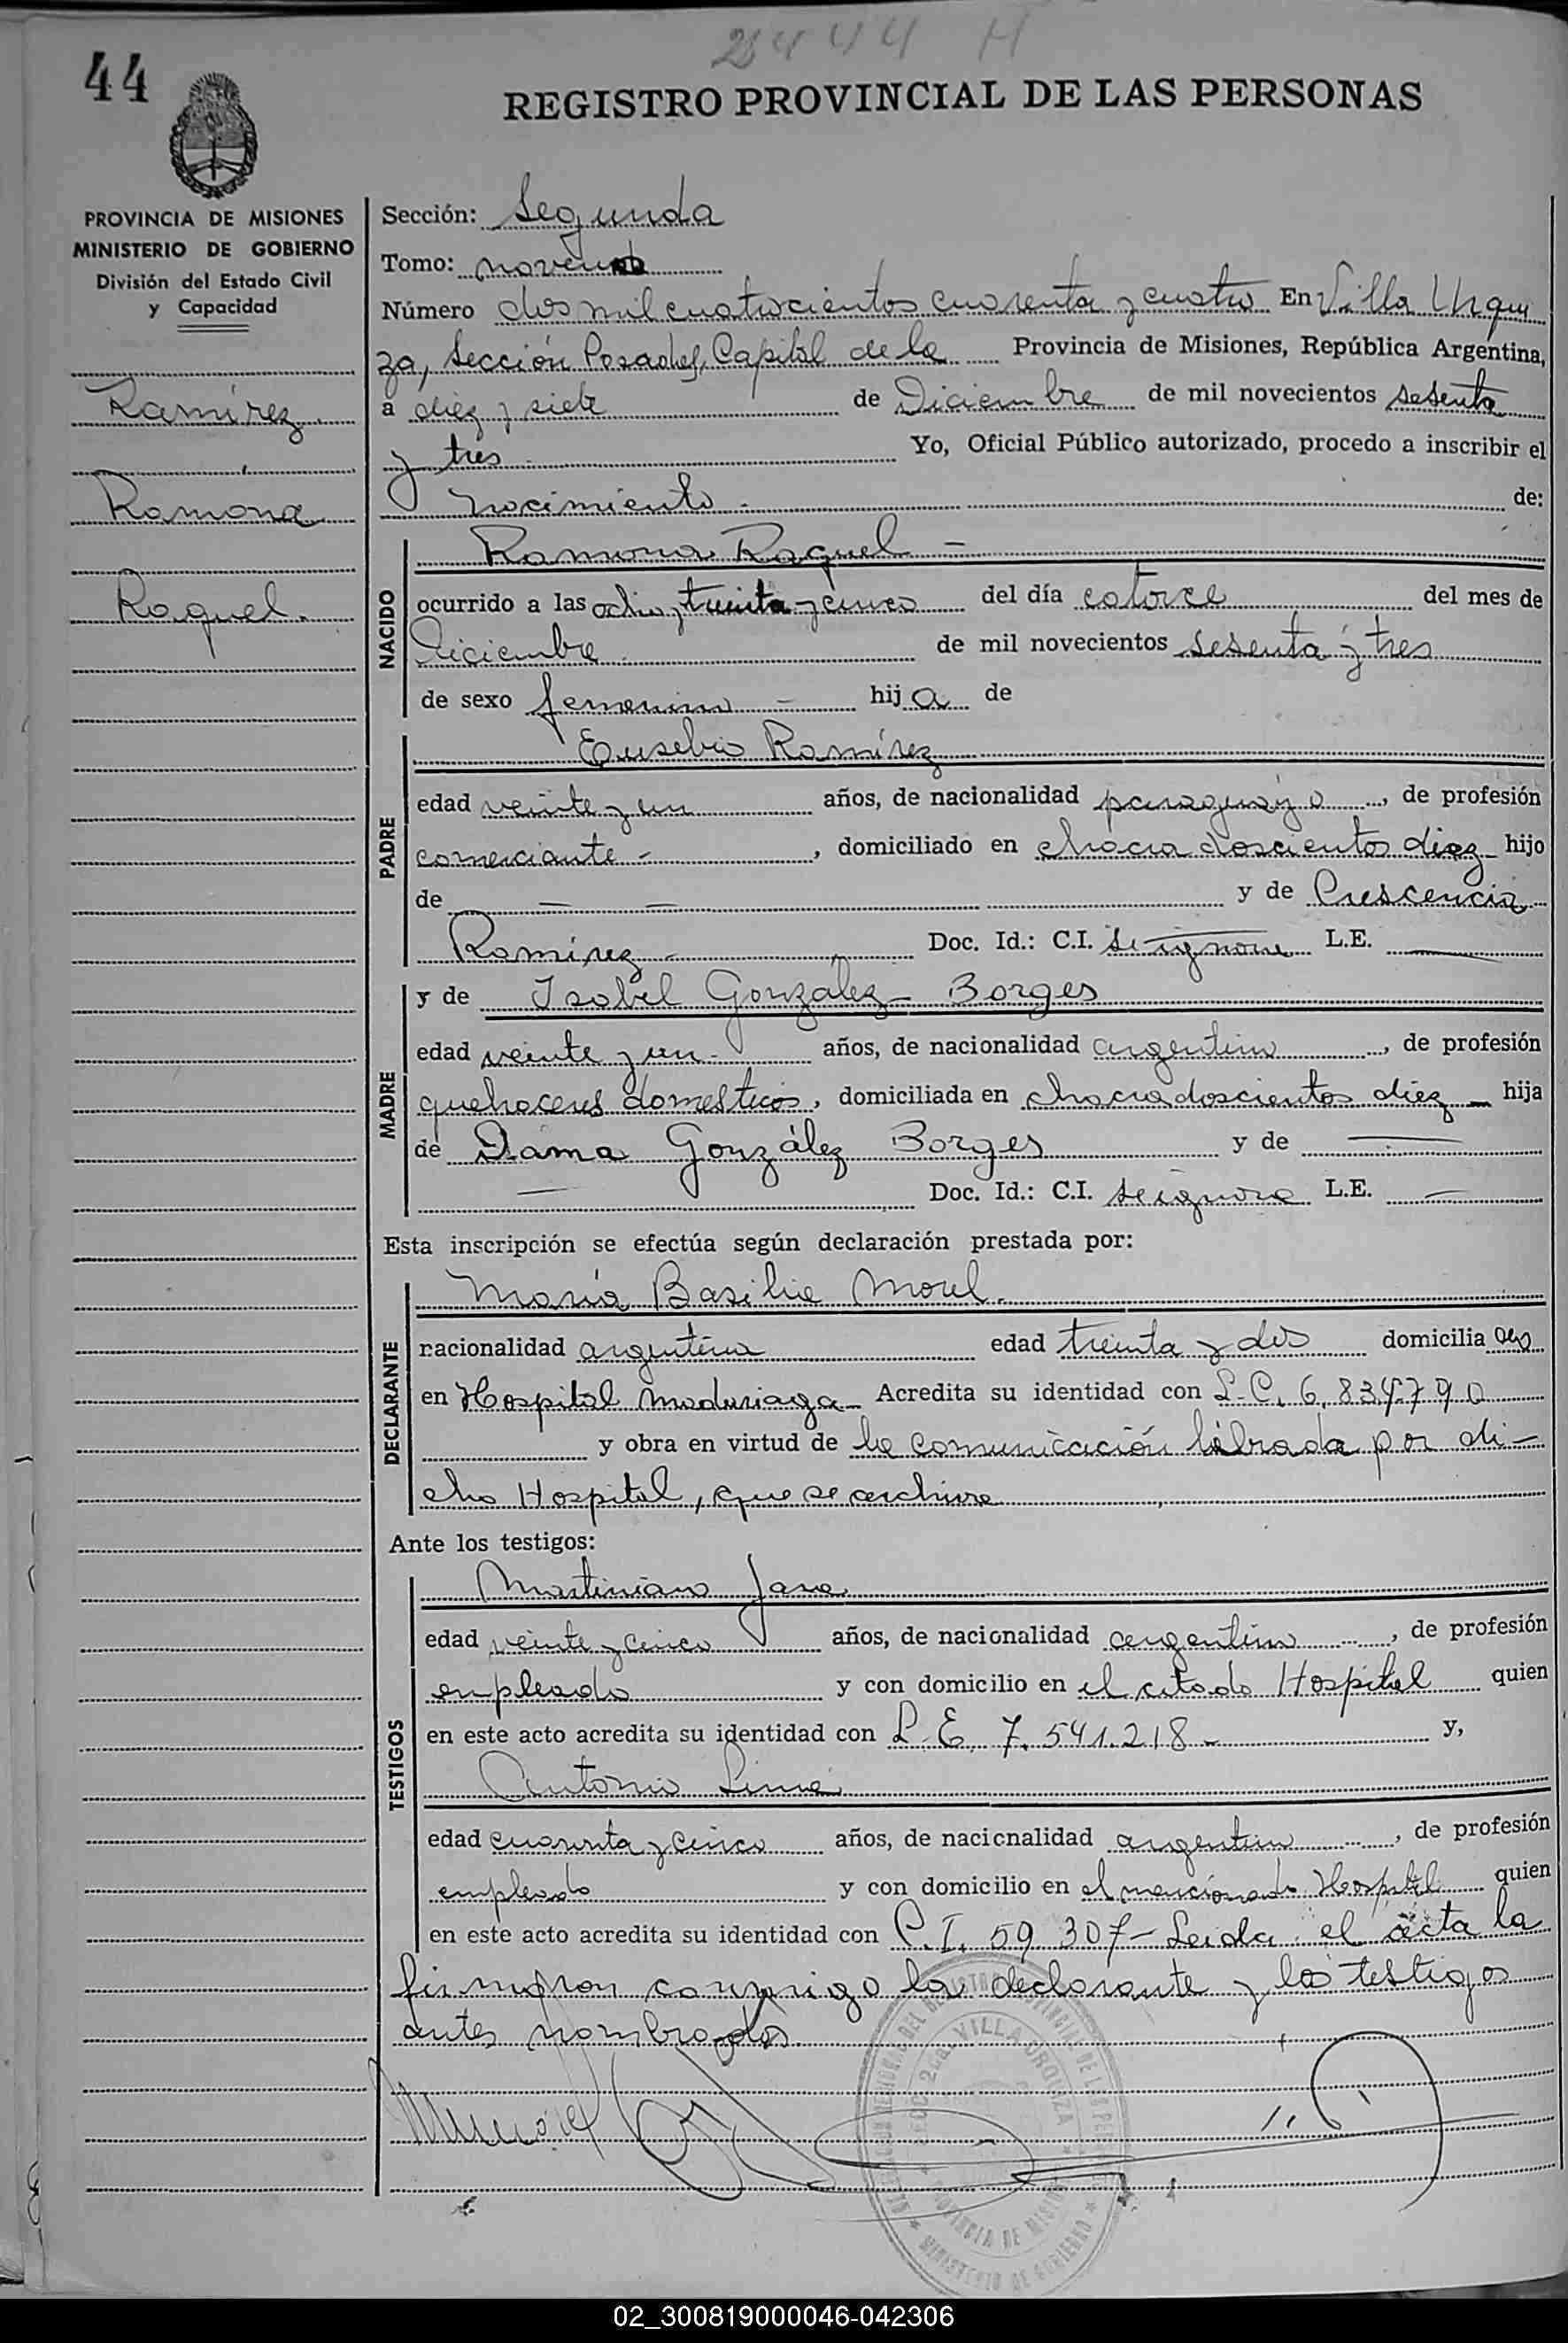 2444 H
44
REGISTRO PROVINCIAL DE LAS PERSONAS
PROVINCIA DE MISIONES
MINISTERIO DE GOBIERNO
División del Estado Civil
y Capacidad
Ramírez
Ramona
Raquel.
Sección: Segunda
Tomo: noveno
Número dos mil cuatrocientos cuarenta y cuatro En Villa Urqui
za, Sección Posadas, Capital de la Provincia de Misiones, República Argentina,
a diez y siete de Diciembre de mil novecientos sesenta
y tres Yo, Oficial Público autorizado, procedo a inscribir el
nacimiento de:
NACIDO
Ramona Raquel -
ocurrido a las ocho y treinta y cinco del día catorce del mes de
Diciembre de mil novecientos sesenta y tres
de sexo femenino - hij a de
PADRE
Eusebio Ramírez
edad veinte y un años, de nacionalidad paraguayo, de profesión
comerciante -, domiciliado en chacra doscientos diez hijo
de — — y de Crescencia
Ramírez - Doc. Id.: C.I. se ignora L.E. —
MADRE
y de Isabel González Borges
edad veinte y un - años, de nacionalidad argentina, de profesión
quehaceres domesticos, domiciliada en chacra doscientos diez - hija
de Dama González Borges y de —
— Doc. Id.: C.I. se ignora L.E. —
Esta inscripción se efectúa según declaración prestada por:
DECLARANTE
María Basilia Morel.
nacionalidad argentina edad treinta y dos domicilia da
en Hospital Madariaga - Acredita su identidad con L.C. 6.834.790
y obra en virtud de la comunicación librada por di-
cho Hospital, que se archiva
Ante los testigos:
TESTIGOS
Martiniano Jara
edad veinte y cinco años, de nacionalidad argentino, de profesión
empleado y con domicilio en el citado Hospital quien
en este acto acredita su identidad con L.E. 7.541.218 - y,
Antonio
edad cuarenta y cinco años, de nacionalidad argentino, de profesión
empleado y con domicilio en el mencionado Hospital quien
en este acto acredita su identidad con C.I. 59.307 - Leida el acta la
firmaron conmigo la declarante y los testigos
antes nombrados
SECC. 2da. VILLA URQUIZA
PROVINCIA DE MISIONES
MINISTERIO DE GOBIERNO
02_300819000046-042306